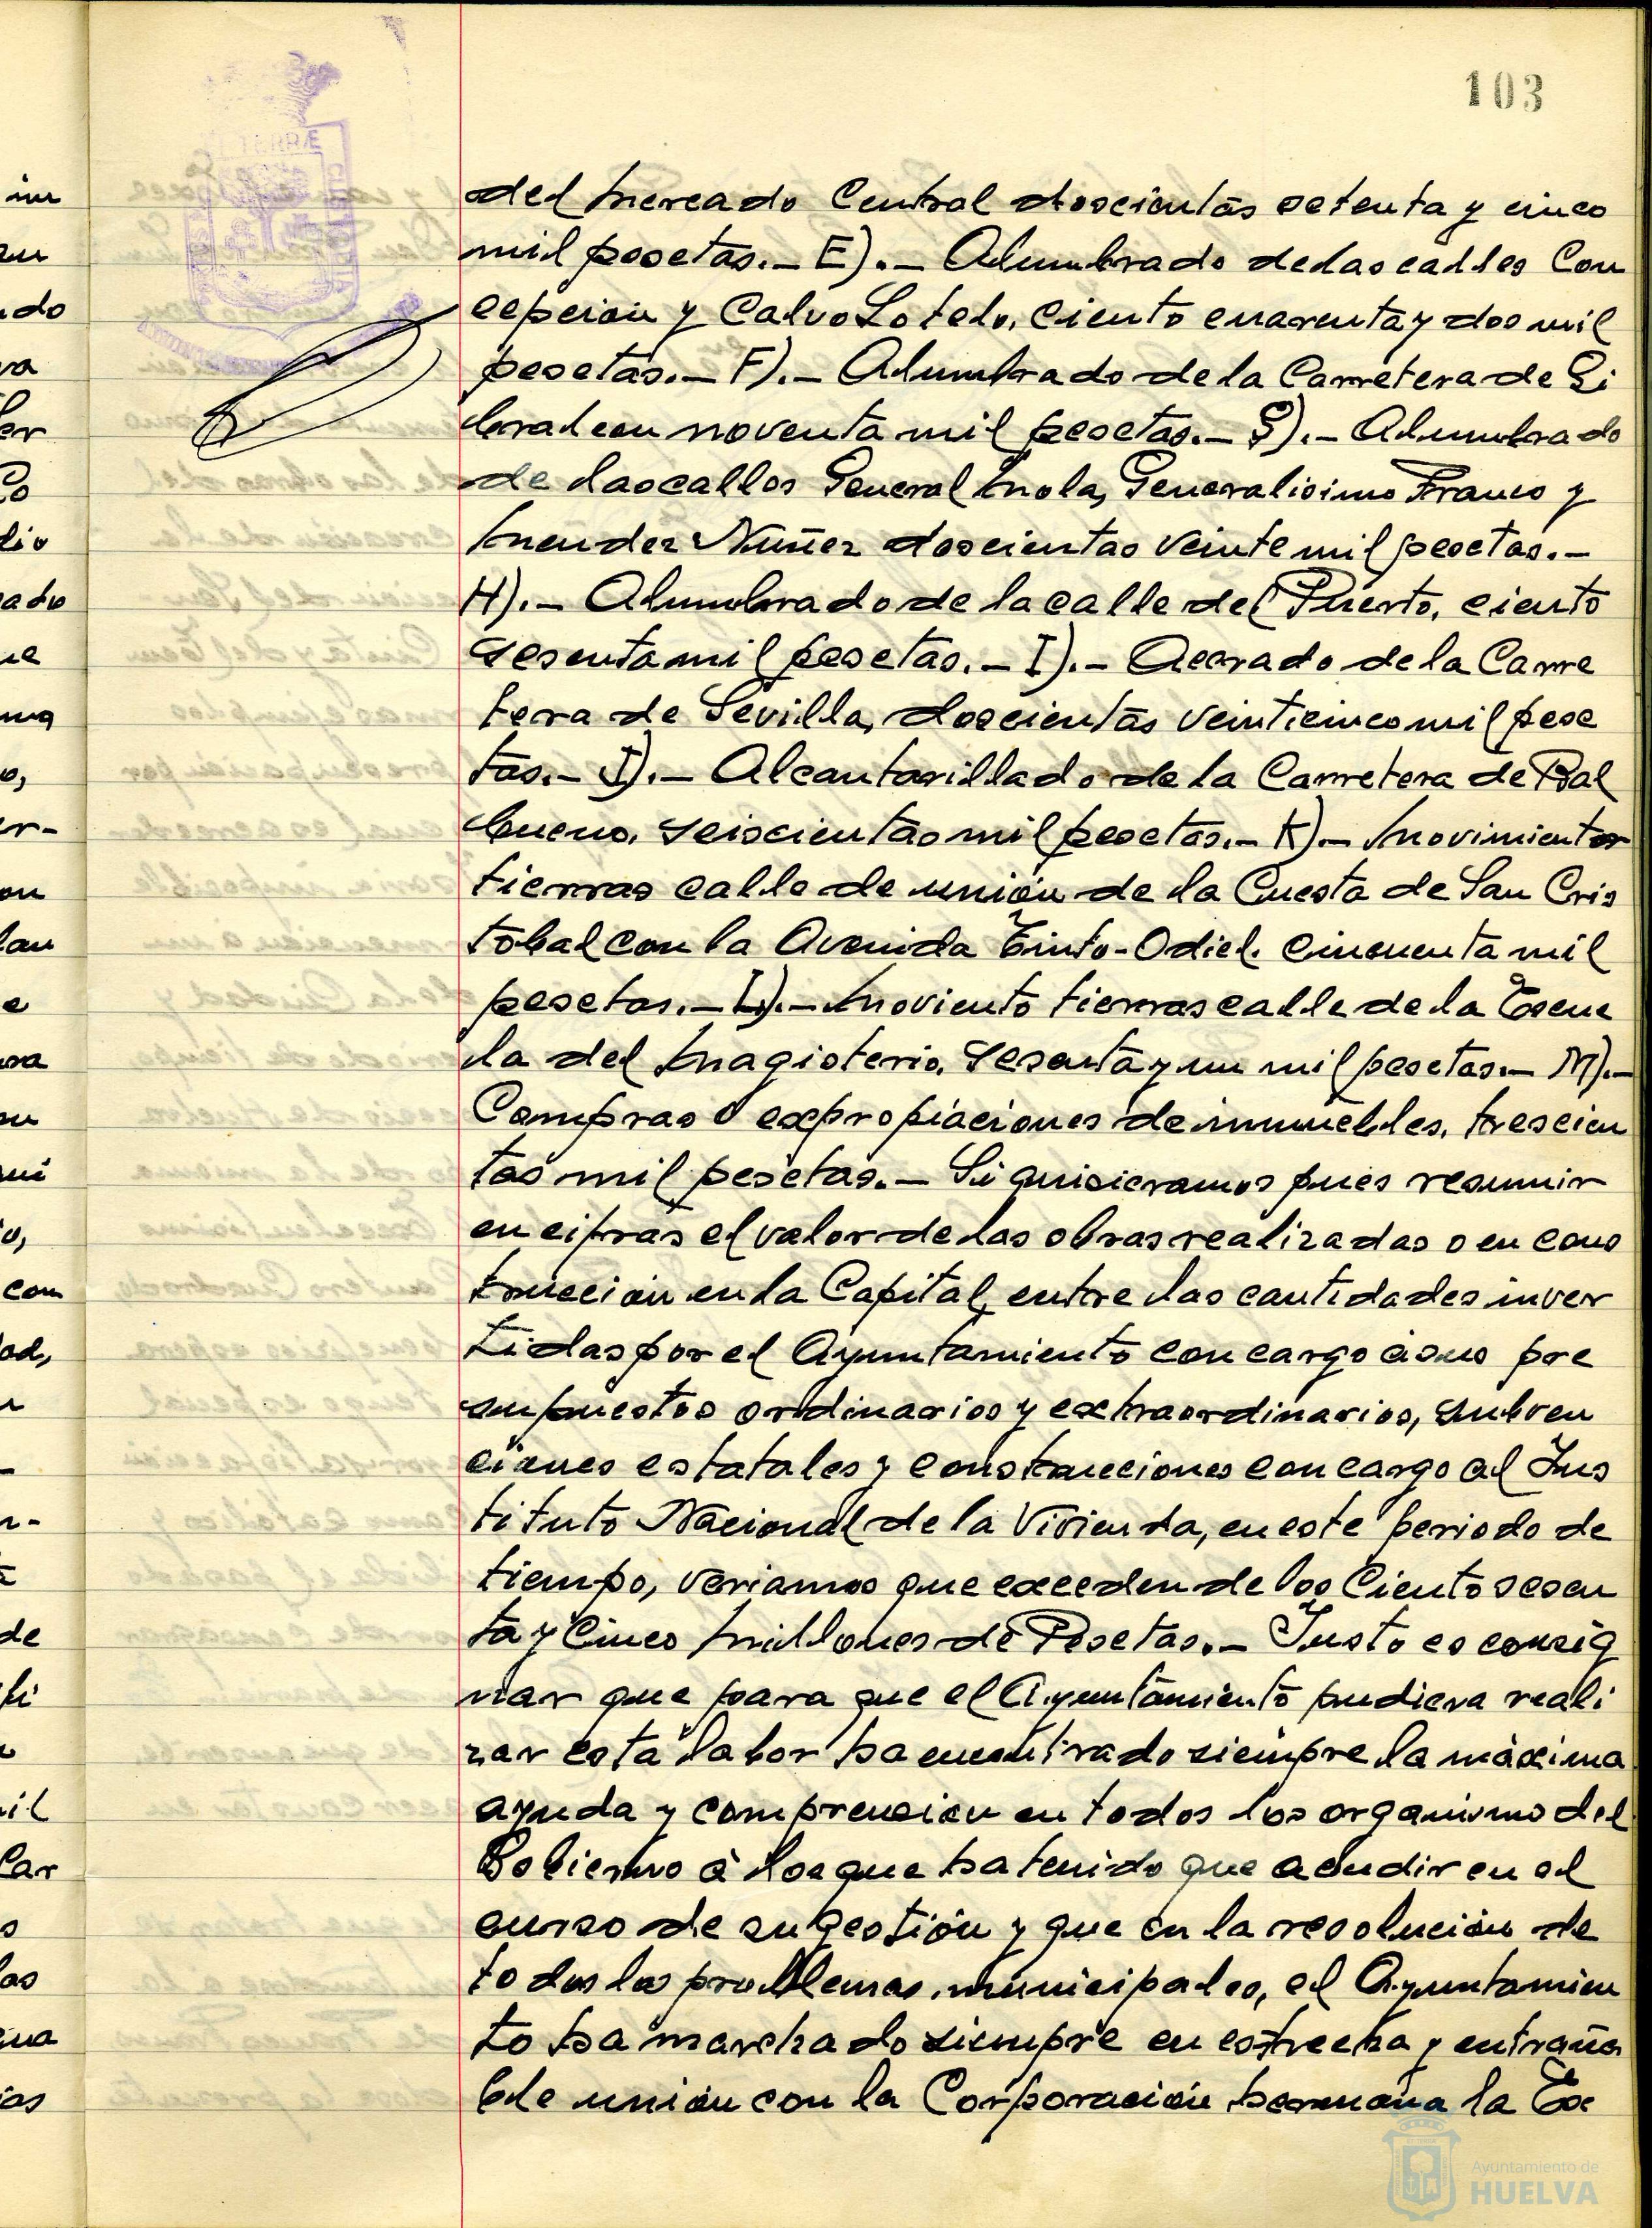 103
del Mercado Central doscientas setenta y cinco
mil pesetas.- E).- Alumbrado de las calles Con
cepción y Calvo Sotelo, ciento cuarenta y dos mil
pesetas.- F).- Alumbrado de la Carretera de Gi
braleon noventa mil pesetas.- G).- Alumbrado
de las calles General Mola, Generalisimo Franco y
Mendez Nuñez doscientas veinte mil pesetas.-
H).- Alumbrado de la calle del Puerto, ciento
sesenta mil pesetas.- I).- Acerado de la Carre
tera de Sevilla, doscientas veinticinco mil pese
tas.- J).- Alcantarillado de la Carretera de Bal
bueno, seiscientas mil pesetas.- K).- Movimientos
tierras calle de unión de la Cuesta de San Cris
tobal con la Avenida Tinto-Odiel. cincuenta mil
pesetas.- L).- Moviento tierras calle de la Escue
la del Magisterio, sesenta y un mil pesetas.- M).-
Compras o expropiaciones de inmuebles, trescien
tas mil pesetas.- Si quisieramos pues resumir
en cifras el valor de las obras realizadas o en cons
trucción en la Capital, entre las cantidades inver
tidas por el Ayuntamiento con cargo à sus pre
supuestos ordinarios y extraordinarios, subven
ciones estatales y construcciones con cargo al Ins
tituto Nacional de la Vivienda, en este periodo de
tiempo, veriamos que exceden de los Ciento sesen
ta y Cinco Millones de Pesetas.- Justo es consig
nar que para que el Ayuntamiento pudiera reali
zar esta labor ha encontrado siempre la màxima
ayuda y comprension en todos los organismo del
Gobierno à los que ha tenido que acudir en el
curso de su gestión y que en la resolución de
todos los problemas municipales, el Ayuntamien
to ha marchado siempre en estrecha y entraña
ble unión con la Corporación hermana la Ex
Ayuntamiento de
HUELVA